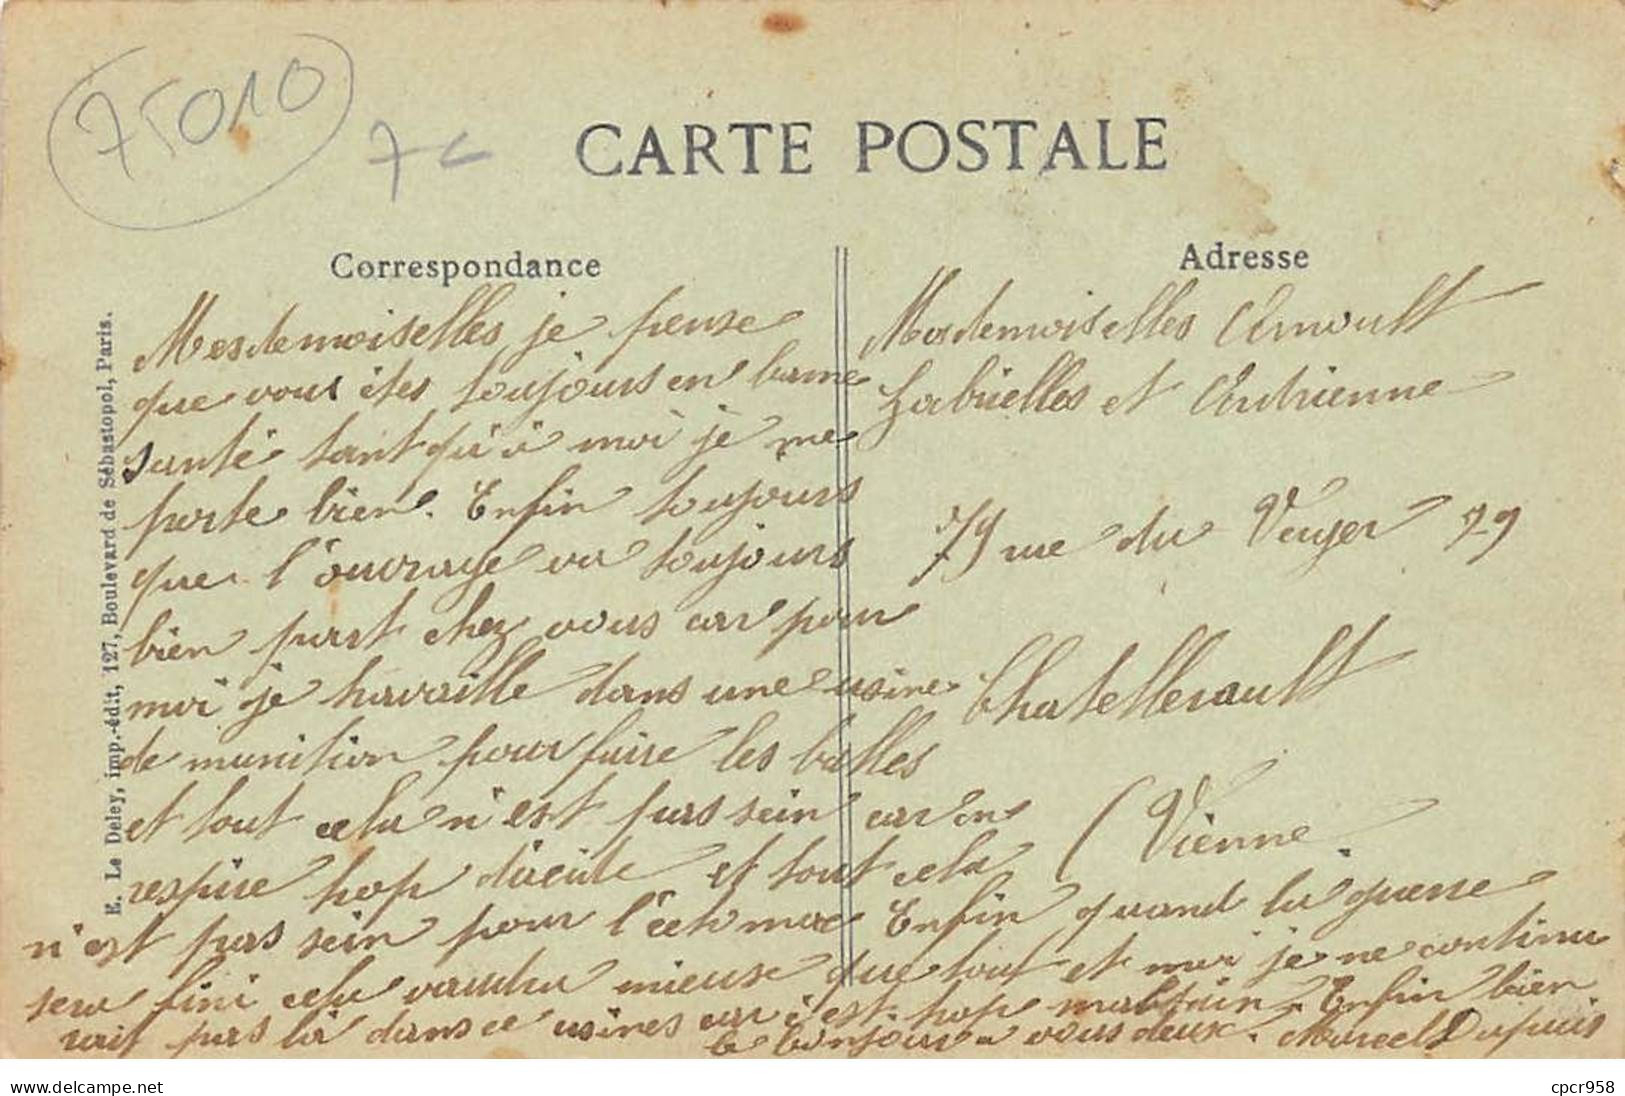 75010
7€
CARTE POSTALE
Correspondance
Adresse
E. Le Deley, imp.-édit, 127, Boulevard de Sébastopol, Paris.
Mesdemoiselles je pense
que vous êtes toujours en bonne
santé tant qu'à moi je me
porte bien. Enfin toujours
que l'ouvrage va toujours
bien part chez vous car pour
moi je travaille dans une usine
de munition pour faire les balles
et tout cela n'est pas sein car on
respire trop d'acide et tout cela
n'est pas sein pour l'estomac Enfin quand la guerre
sera fini cela vaudra mieuse que tout et moi je ne continu
rait pas là dans ce usines car c'est trop maltsain. Enfin bien
le bonjour a vous deux. Marcel Dupuis
Mesdemoiselles Arnoult
Gabrielles et Andrienne
79 rue du Verger 79
Chatellerault
(Vienne.
www.delcampe.net
cpcr958